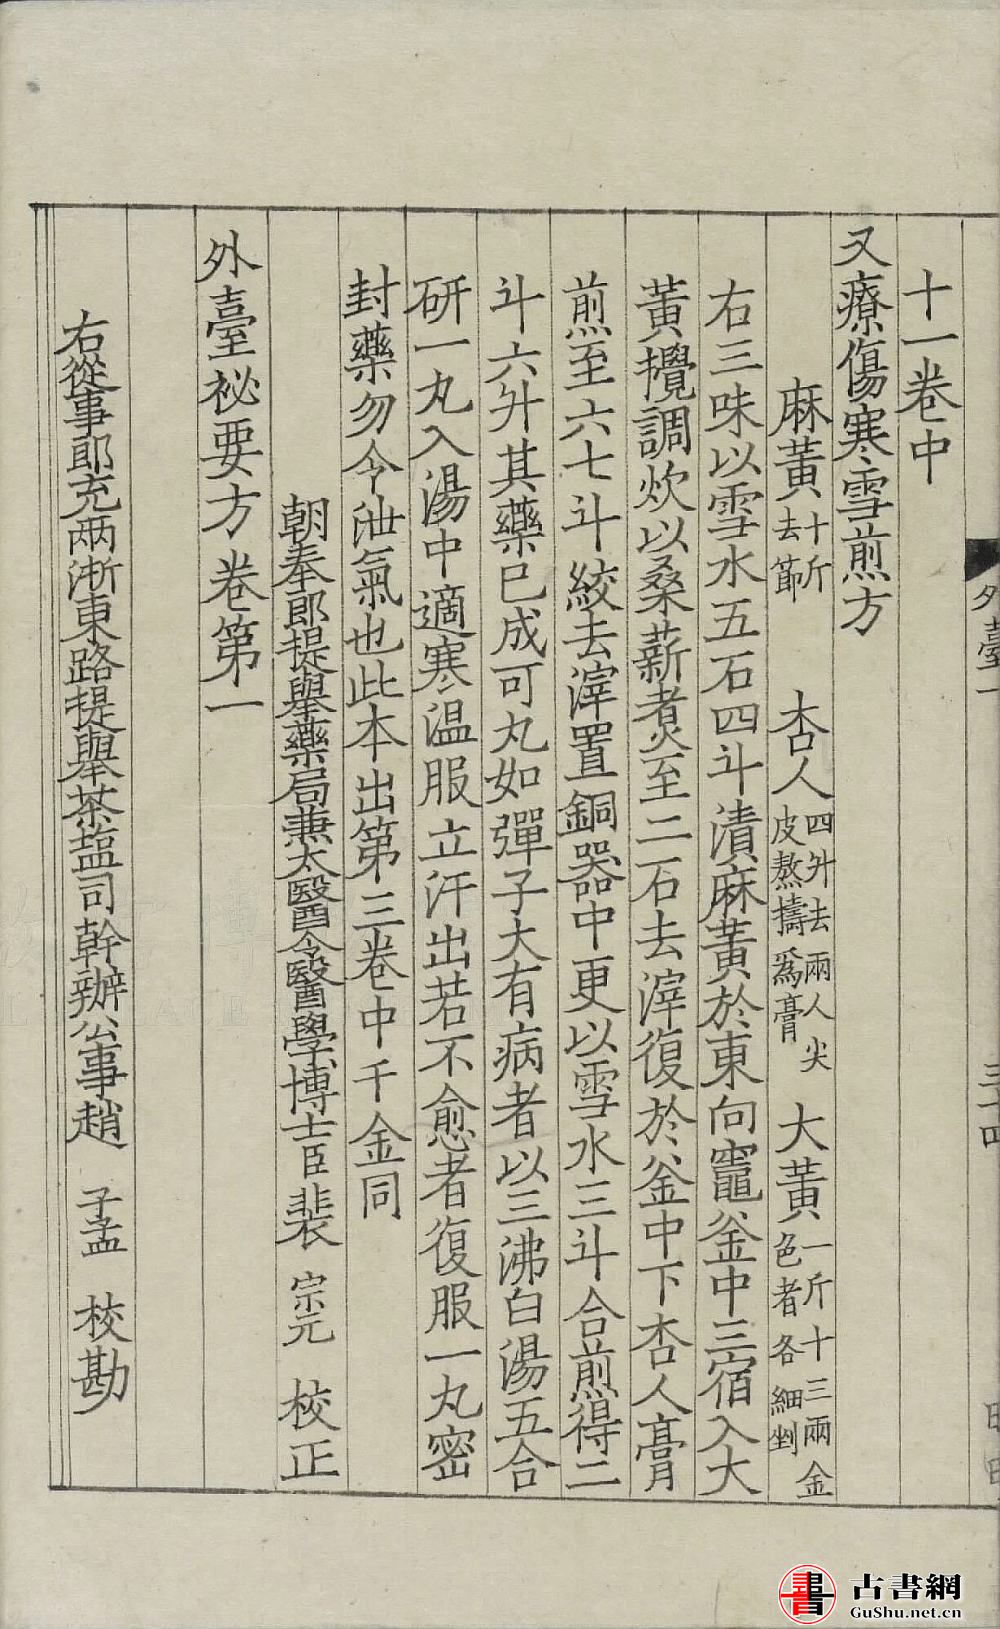 十一卷中
又療傷寒雪煎方
麻黃十斤去節 杏人四升去兩人尖皮熬擣爲膏 大黃一斤十三兩金色者各細剉
右三味以雪水五石四斗漬麻黃於東向竈釜中三宿入大
黃攪調炊以桑薪煑至二石去滓復於釜中下杏人膏
煎至六七斗絞去滓置銅器中更以雪水三斗合煎得二
斗六升其藥已成可丸如彈子大有病者以三沸白湯五合
研一丸入湯中適寒温服立汗出若不愈者復服一丸密
封藥勿令泄氣也此本出第三卷中千金同
朝奉郎提舉藥局兼太醫令醫學博士臣裴 宗元 校正
外臺祕要方卷第一
右從事郎充兩浙東路提舉茶鹽司幹辦公事趙 子孟 校勘
外臺一
三十四
古書網
GuShu.net.cn